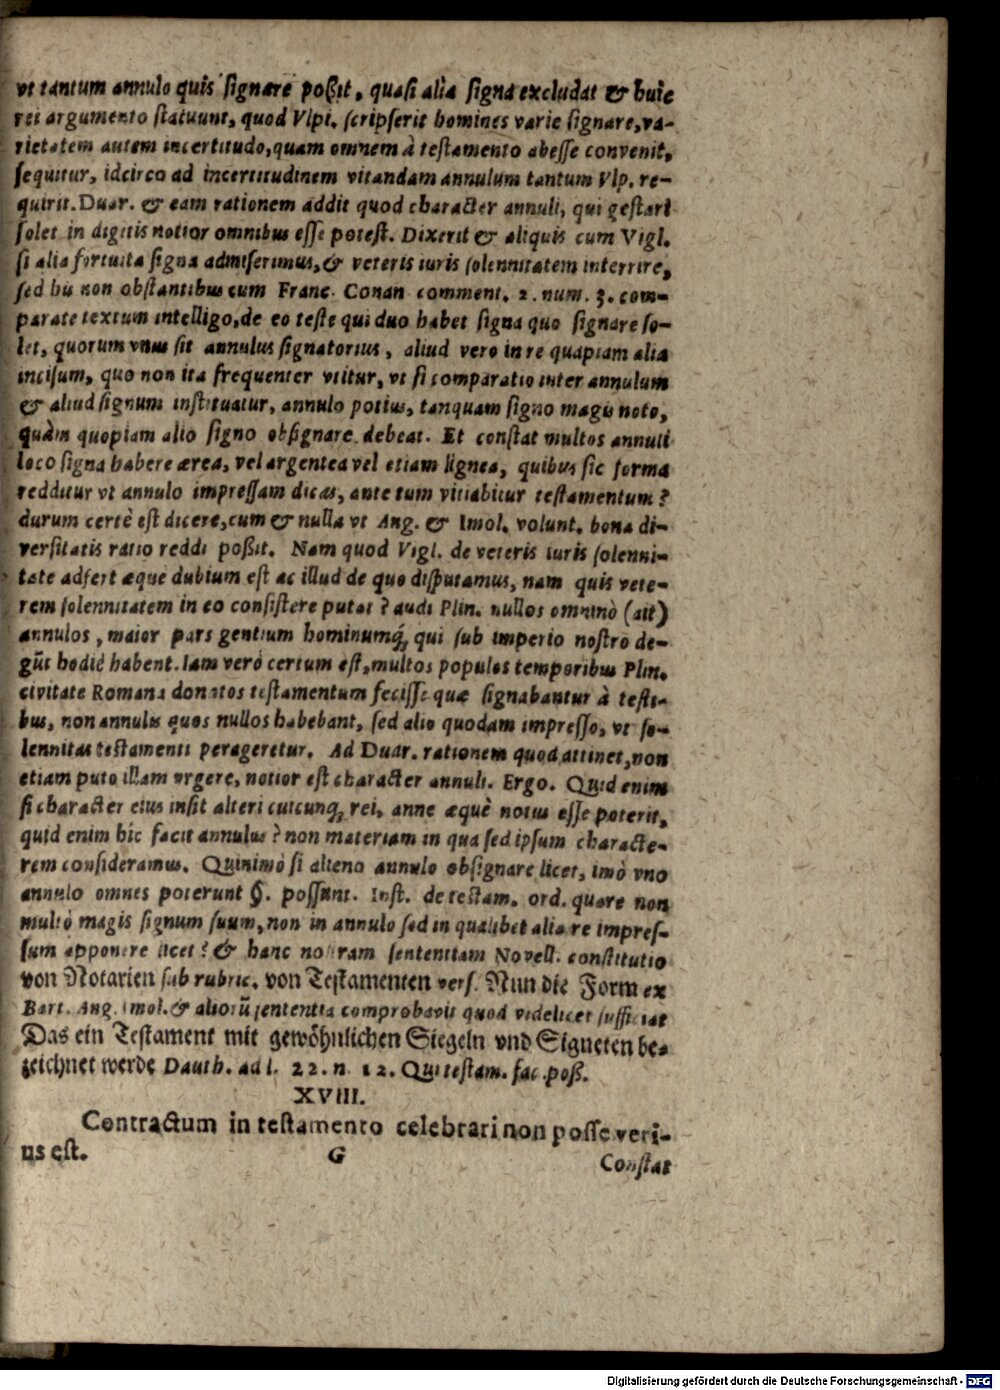 vt tantum annulo quis signare poßit, quasi alia signa excludat & huic
rei argumento statuunt, quod Vlpi. scripserit homines varie signare, va-
rietatem autem incertitudo, quam omnem à testamento abesse convenit,
sequitur, idcirco ad incertitudinem vitandam annulum tantum Vlp. re-
quirit. Duar. & eam rationem addit quod character annuli, qui gestari
solet in digitis notior omnibus esse potest. Dixerit & aliquis cum Vigl.
si alia fortuita signa admiserimus, & veteris iuris solennitatem interrire,
sed his non obstantibus cum Franc. Conan comment. 2. num. 3. com-
parate textum intelligo, de eo teste qui duo habet signa quo signare so-
let, quorum vnus sit annulus signatorius, aliud vero in re quapiam alia
incisum, quo non ita frequenter vtitur, vt si comparatio inter annulum
& aliud signum instituatur, annulo potius, tanquam signo magis noto,
quàm quopiam alio signo obsignare debeat. Et constat multos annuli
loco signa habere ærea, vel argentea vel etiam lignea, quibus sic forma
redditur vt annulo impressam dicas, ante tum vitiabitur testamentum?
durum certè est dicere, cum & nulla vt Ang. & Imol. volunt. bona di-
versitatis ratio reddi poßit. Nam quod Vigl. de veteris iuris solenni-
tate adfert æque dubium est ac illud de quo disputamus, nam quis vete-
rem solennitatem in eo consistere putat? audi Plin. nullos omninò (ait)
annulos, maior pars gentium hominumq́; qui sub imperio nostro de-
gũt hodiè habent. Iam verò certum est, multos populos temporibus Plin.
civitate Romana donatos testamentum fecisse quæ signabantur à testi-
bus, non annulis quos nullos habebant, sed alio quodam impresso, vt so-
lennitas testamenti perageretur. Ad Duar. rationem quod attinet, non
etiam puto illam vrgere, notior est character annuli. Ergo. Quid enim
si character eius insit alteri cuicunq; rei, anne æquè notus esse poterit,
quid enim hic facit annulus? non materiam in qua sed ipsum characte-
rem consideramus. Quinimò si alieno annulo obsignare licet, imò vno
annulo omnes poterunt §. possunt. Inst. de testam. ord. quare non
multò magis signum suum, non in annulo sed in qualibet alia re impres-
sum apponere licet? & hanc nostram sententiam Novell. constitutio
von Notarien sub rubric. von Testamenten vers. Nun die Form ex
Bart. Ang. Imol. & aliorũ sententia comprobavit quod videlicet sufficiat
Das ein Testament mit gewöhnlichen Siegeln vnd Signeten be-
zeichnet werde Dauth. ad l. 22. n. 12. Qui testam. fac. poß.
XVIII.
Contractum in testamento celebrari non posse veri-
us est.
G
Constat
Digitalisierung gefördert durch die Deutsche Forschungsgemeinschaft - DFG